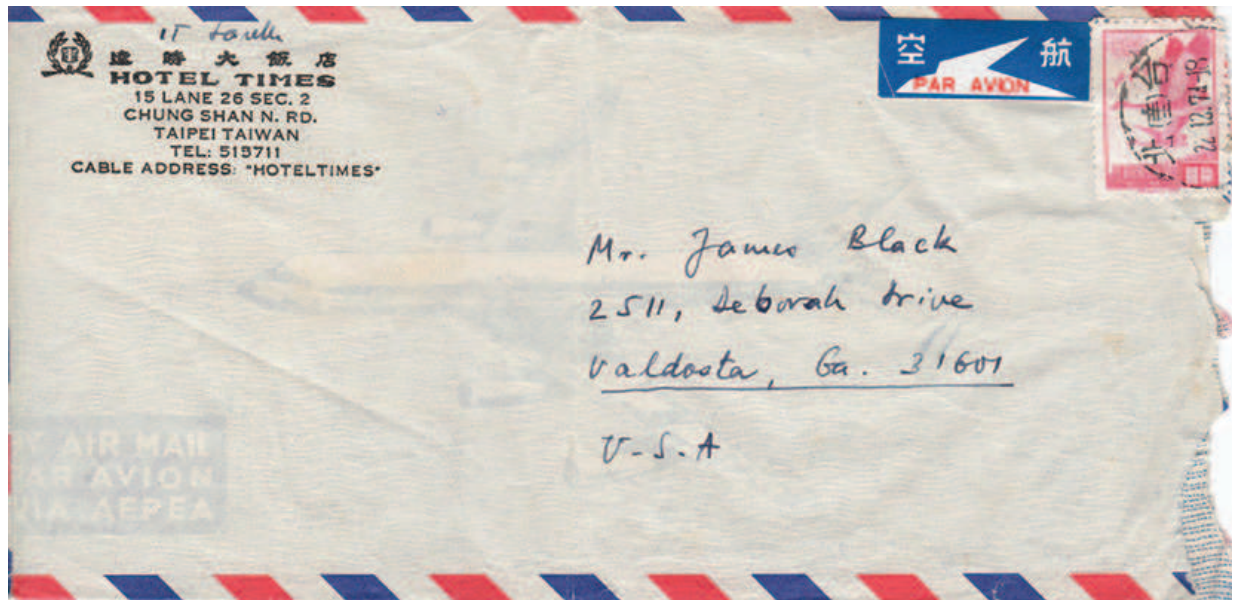 時 大 飯 店
HOTEL TIMES
15 LANE 26 SEC. 2
CHUNG SHAN N. RD.
TAIPEI TAIWAN
TEL:
CABLE ADDRESS: "HOTELTIMES"
空 航
PAR AVION
台 北
Mr. James Black
2511, Deborah Drive
Valdosta, Ga. 31601
U-S.A
Y AIR MAIL
AR AVION
VIA AEPEA